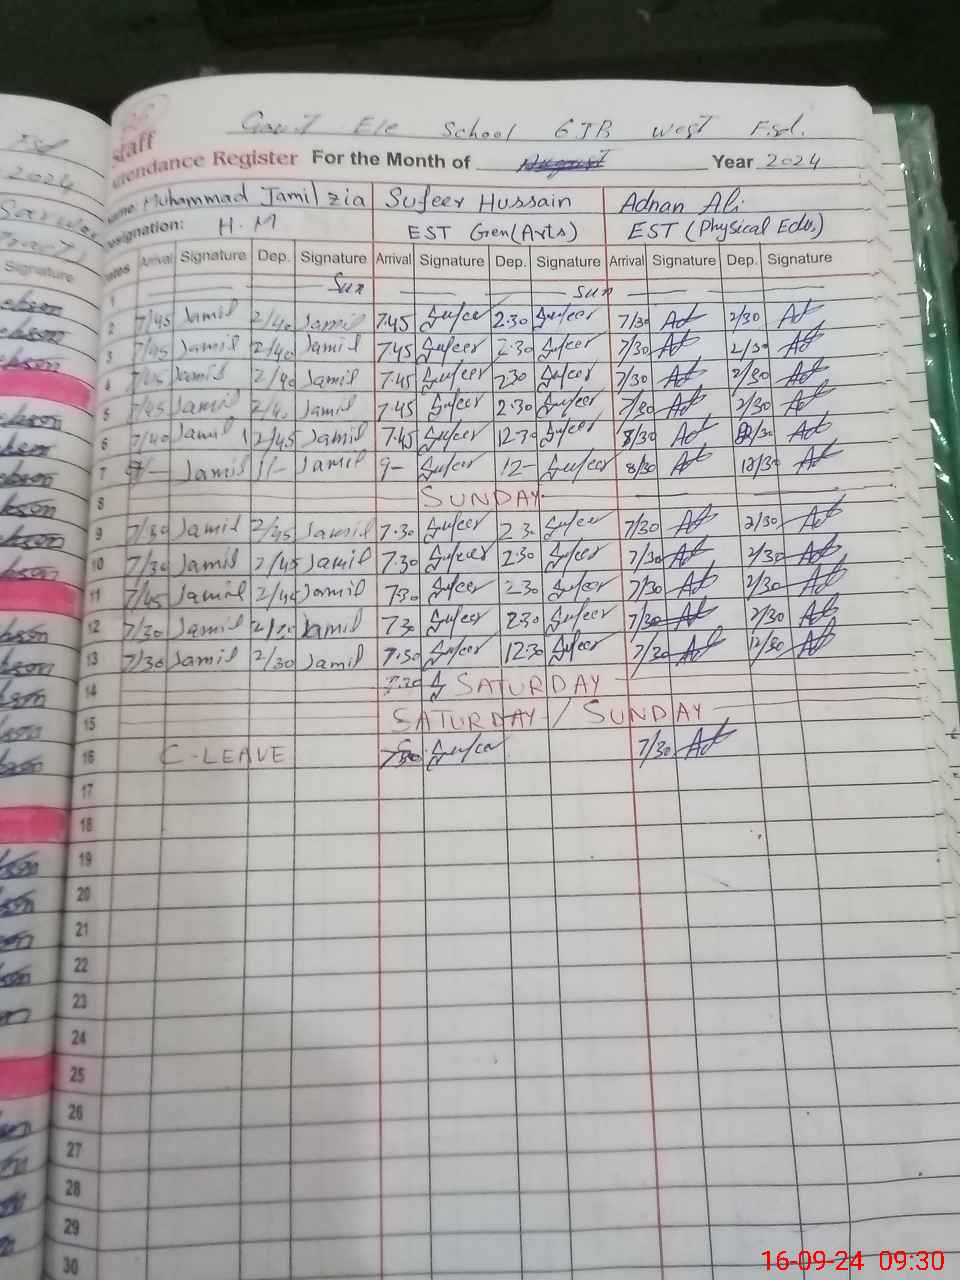 Fsd
2024
Signature
Staff
Gov.T Ele School 6JB West Fsd.
Attendance Register For the Month of August Year 2024
Name: Muhammad Jamil zia Sufeer Hussain Adnan Ali
Designation: H.M EST Gen(Arts) EST (Physical Edu.)
Dates Arrival Signature Dep. Signature Arrival Signature Dep. Signature Arrival Signature Dep. Signature
1 Sun Sun
2 7/45 Jamil 2/40 Jamil 7.45 Sufeer 2.30 Sufeer 7/30 Ad 2/30 Ad
3 7/45 Jamil 2/40 Jamil 7.45 Sufeer 2.30 Sufeer 7/30 Ad 2/30 Ad
4 7/45 Jamil 2/40 Jamil 7.45 Sufeer 230 Sufeer 7/30 Ad 2/30 Ad
5 7/45 Jamil 2/4. Jamil 7.45 Sufeer 2.30 Sufeer 7/30 Ad 2/30 Ad
6 7/40 Jamil 12/45 Jamil 7.45 Sufeer 12.30 Sufeer 8/30 Ad /30 Ad
7 9/- Jamil 1/- Jamil 9- Sufeer 12- Sufeer 8/30 Ad 12/30 Ad
8 SUNDAY
9 7/30 Jamil 2/45 Jamil 7.30 Sufeer 2.30 Sufeer 7/30 Ad 2/30 Ad
10 7/30 Jamil 2/45 Jamil 7.30 Sufeer 2.30 Sufeer 7/30 Ad 2/30 Ad
11 7/45 Jamil 2/40 Jamil 730 Sufeer 230 Sufeer 7/30 Ad 2/30 Ad
12 7/30 Jamil 2/30 Jamil 730 Sufeer 230 Sufeer 7/30 Ad 2/30 Ad
13 7/30 Jamil 2/30 Jamil 7.30 Sufeer 12.30 Sufeer 7/30 Ad 12/30 Ad
14 7.30 SATURDAY
15 SATURDAY / SUNDAY
16 C-LEAVE 730 Sufeer 7/30 Ad
17
18
19
20
21
22
23
24
25
26
27
28
29
30
16-09-24 09:30